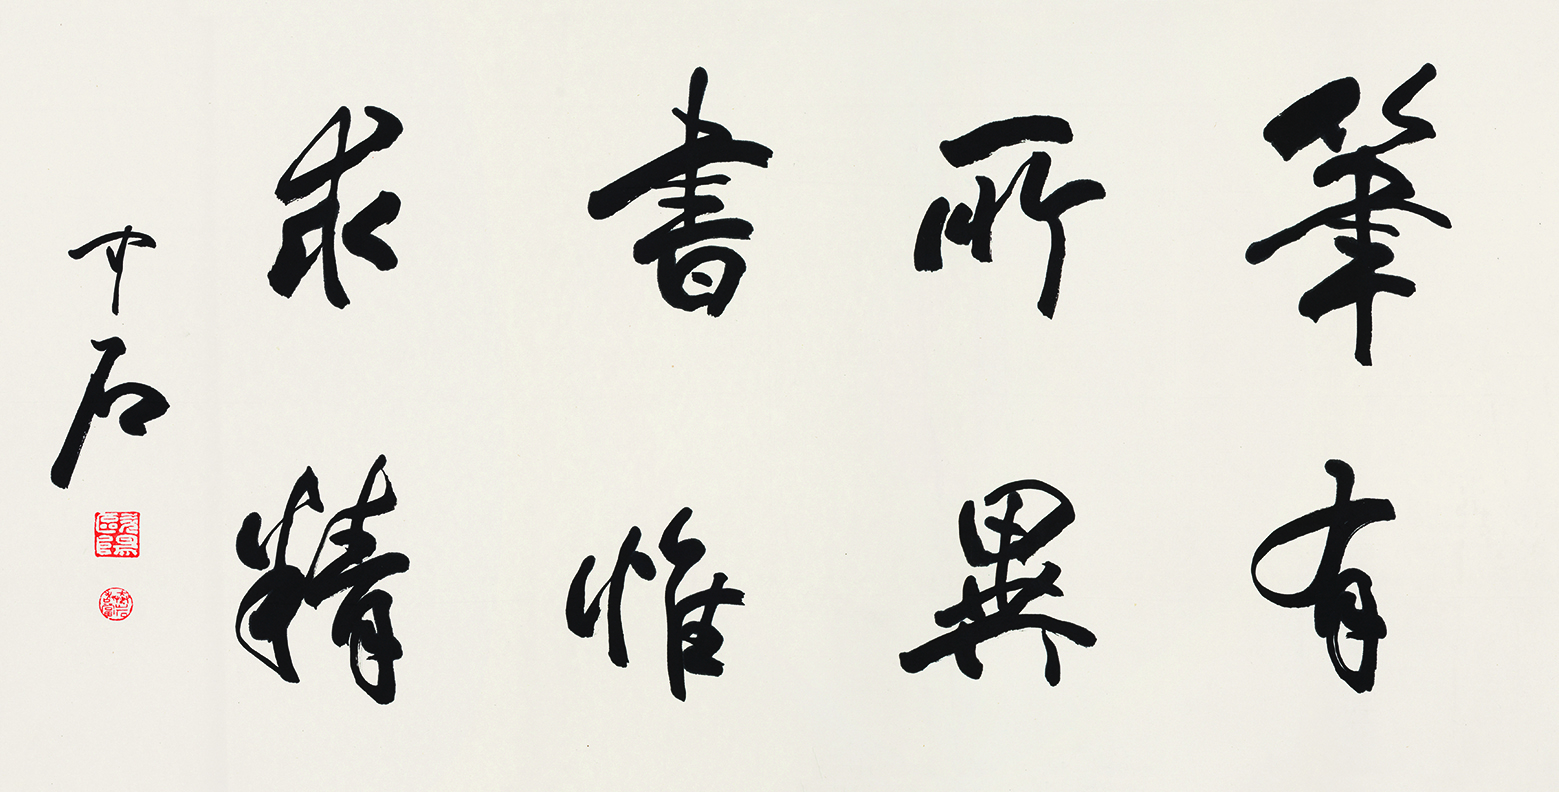 筆有
所異
書惟
求精
中石